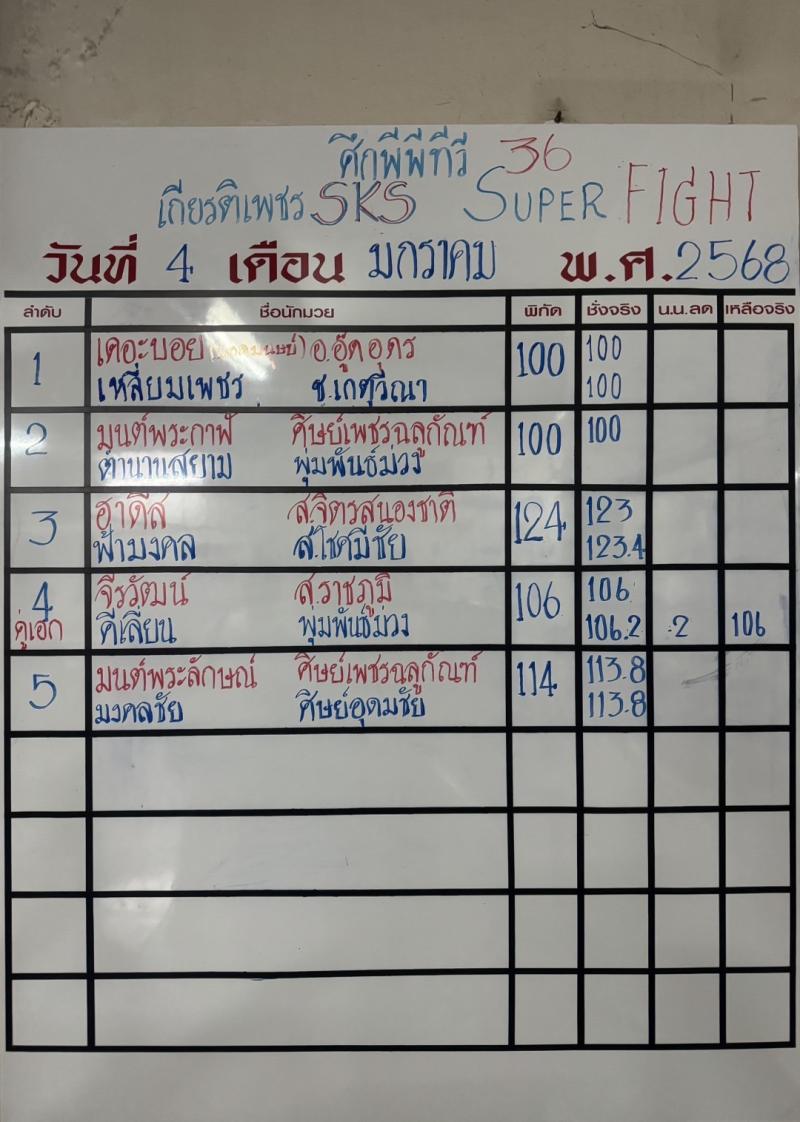 ศึกพีพีทีวี 36
เกียรติเพชร SKS SUPER FIGHT
วันที่ 4 เดือน มกราคม พ.ศ.2568
ลำดับ ชื่อนักมวย พิกัด ชั่งจริง น.น.ลด เหลือจริง
1 เดอะบอย อ.อู๊ดอุดร 100 100
เหลี่ยมเพชร ช.เกตุวีณา 100
2 มนต์พระกาฬ ศิษย์เพชรฉลูกัณฑ์ 100 100
ตำนานสยาม พุ่มพันธ์ม่วง
3 ฮาดีส ส.จิตรสนองชาติ 124 123
ฟ้ามงคล ส.โชคมีชัย 123.4
4 จีรวัฒน์ ส.ราชภูมิ 106 106
คู่เอก คีเลี่ยน พุ่มพันธ์ม่วง 106.2 .2 106
5 มนต์พระลักษณ์ ศิษย์เพชรฉลูกัณฑ์ 114 113.8
มงคลชัย ศิษย์อุดมชัย 113.8